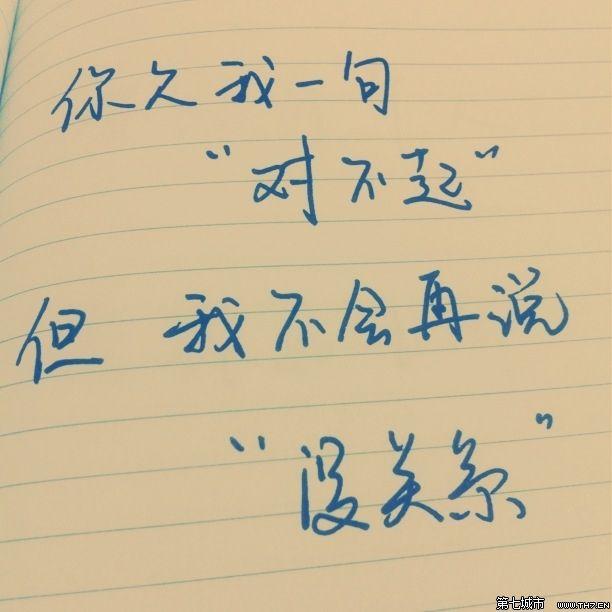 你欠我一句
"对不起"
但 我不会再说
"没关系"
第七城市 WWW.TH7.CN